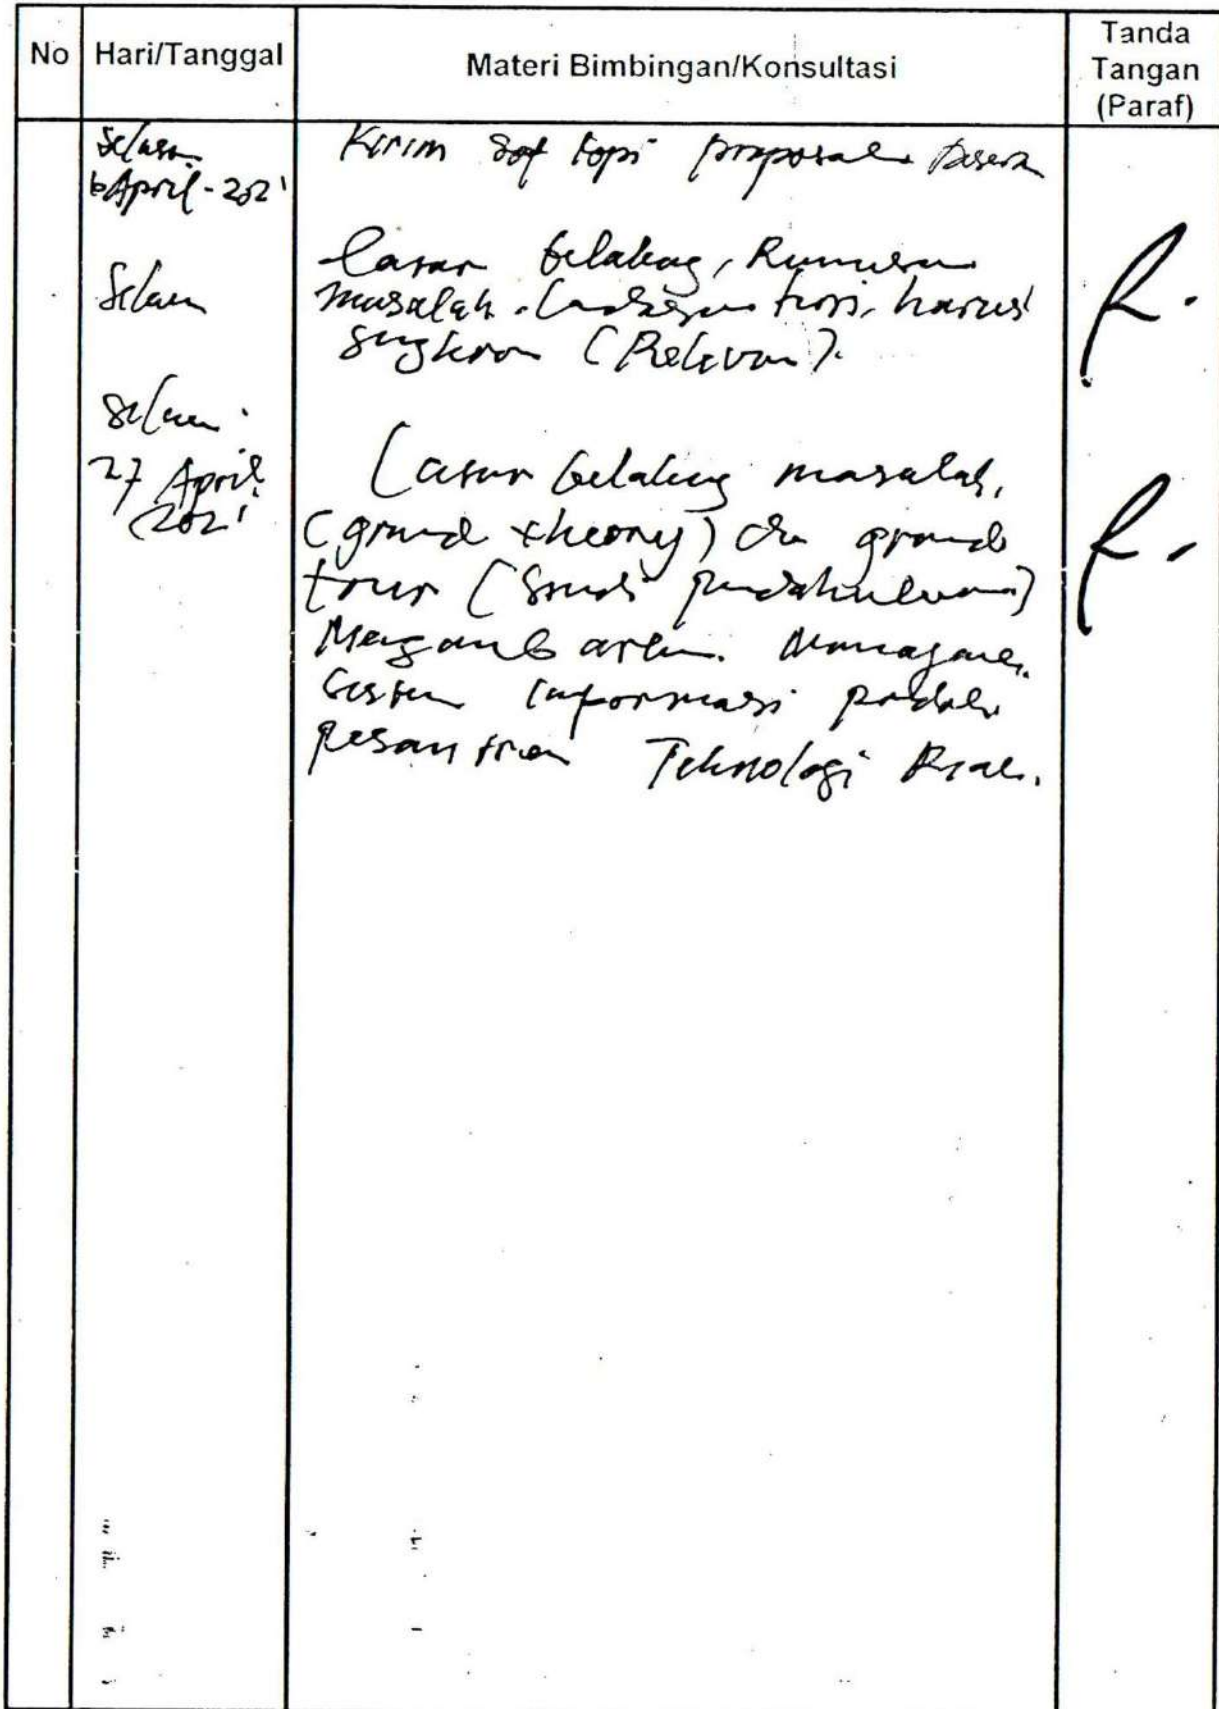 No Hari/Tanggal Materi Bimbingan/Konsultasi Tanda Tangan (Paraf)
Selasa 6 April - 2021 Kirim sof kopi proposal
Latar belakang, Rumusan
masalah, harus
singkron (Relevan).
27 April 2021 Latar belakang masalah,
(grand theory) dan grand
tour (Studi pendahuluan)
Menggambarkan
sistem informasi pada
pesantren Teknologi Riau.